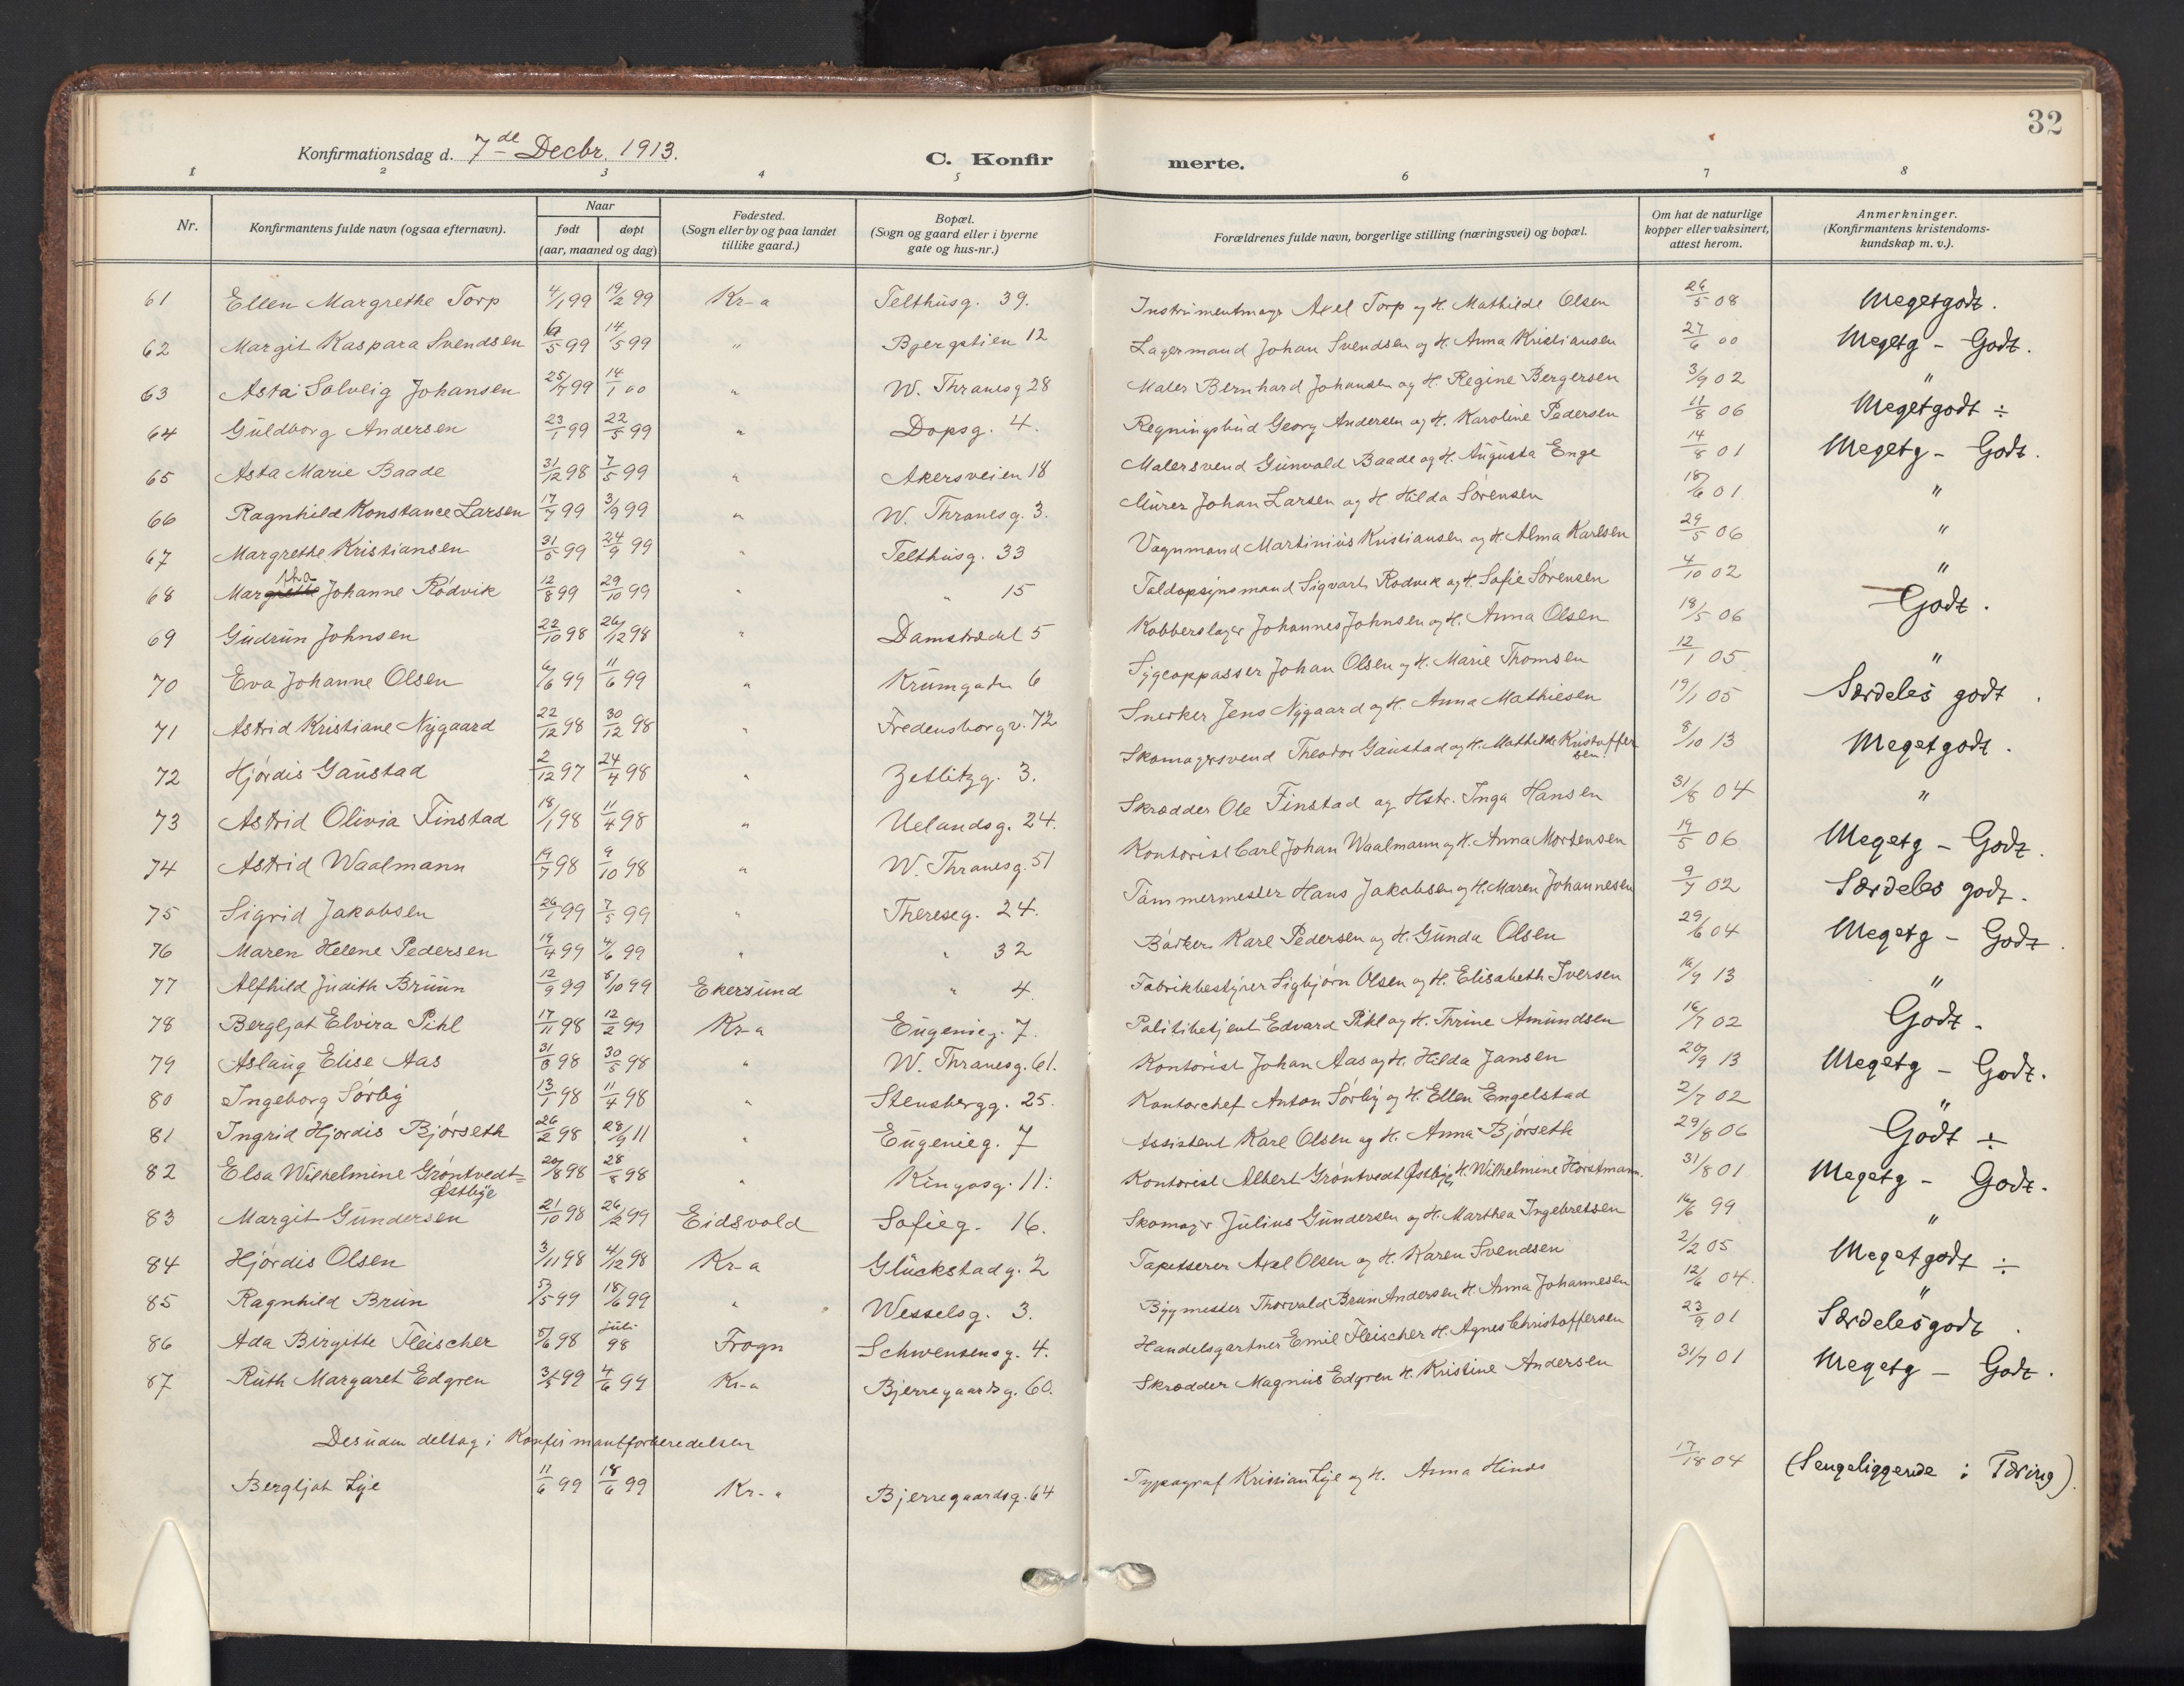 32
Konfirmationsdag d. 7de Decbr. 1913. C. Konfir merte.
1 2 3 4 5 6 7 8
Nr. Konfirmantens fulde navn (ogsaa efternavn). Naar født døpt (aar, maaned og dag) Fødested. (Sogn eller by og paa landet tillike gaard.) Bopæl. (Sogn og gaard eller i byerne gate og hus-nr.) Forældrenes fulde navn, borgerlige stilling (næringsvei) og bopæl. Om hat de naturlige kopper eller vaksinert, attest herom. Anmerkninger. (Konfirmantens kristendoms-kundskap m. v.).
61 Ellen Margrethe Torp 4/1 99 19/2 99 Kr-a Telthusg. 39. Instrumentmagr Axel Torp og H. Mathilde Olsen 26/5 08 Megetgodt.
62 Margit Kaspara Svendsen 5 99 14/5 99 " Bjergstien 12 Lagermand Johan Svendsen og H. Anna Kristiansen 27/6 00 Megetg - Godt.
63 Asta Solveig Johansen 25/7 99 14/1 00 " W. Thranesg 28 Maler Bernhard Johansen og H. Regine Bergersen 3/9 02 "
64 Guldborg Andersen 23/1 99 22/5 99 " Dopsg. 4. Regningsbud Georg Andersen og H. Karoline Pedersen 11/8 06 Megetgodt ÷
65 Asta Marie Baade 31/12 98 7/5 99 " Akersveien 18 Malersvend Gunvald Baade og H. Augusta Enge 14/8 01 Megetg - Godt.
66 Ragnhild Konstance Larsen 17/7 99 3/9 99 " W. Thranesg. 3. Murer Johan Larsen og H. Hilda Sørensen 18/6 01 "
67 Margrethe Kristiansen 31/5 99 24/9 99 " Telthusg. 33 Vognmand Martinius Kristiansen og H. Alma Karlsen 29/5 06 "
68 Margrethe tha Johanne Rødvik 12/8 99 29/10 99 " " 15 Toldopsynsmand Sigvart Rødvik og H. Sofie Sørensen 4/10 02 "
69 Gudrun Johnsen 22/10 98 26/12 98 " Damstrædet 5 Kobberslager Johannes Johnsen og H. Anna Olsen 18/5 06 Godt.
70 Eva Johanne Olsen 6/6 99 11/6 99 " Krumgaten 6 Sygeoppasser Johan Olsen og H. Marie Thomsen 12/1 05 "
71 Astrid Kristiane Nygaard 22/12 98 30/12 98 " Fredensborgv. 72 Snerker Jens Nygaard og H. Anna Mathiesen 19/1 05 Særdeles godt.
72 Hjørdis Gaustad 2/12 97 24/4 98 " Zetlitzg. 3. Skomagersvend Theodor Gaustad og H. Mathilde Kristoffersen. 8/10 13 Megetgodt.
73 Astrid Olivia Finstad 18/1 98 11/4 98 " Uelandsg. 24. Skrædder Ole Finstad og Hstr. Inga Hansen 31/8 04 "
74 Astrid Waalmann 19/7 98 9/10 98 " W. Thranesg. 51 Kontorist Carl Johan Waalmann og H. Anna Mortensen 19/5 06 Megetg - Godt.
75 Sigrid Jakobsen 26/1 99 7/5 99 " Thereseg. 24. Tømmermester Hans Jakobsen og H. Maren Johannesen 9/7 02 Særdeles godt.
76 Maren Helene Pedersen 19/4 99 4/6 99 " " 32 Bøtker Karl Pedersen og H. Gunda Olsen 29/6 04 Megetg - Godt.
77 Alfhild Judith Bruun 12/9 99 8/10 99 Ekersund " 4. Fabrikbestyrer Sigbjørn Olsen og H. Elisabeth Iversen 16/9 13 "
78 Bergljot Elvira Pihl 17/11 98 12/2 99 Kr-a Eugenieg. 7. Politibetjent Edvard Pihl og H. Thrine Amundsen 16/7 02 Godt.
79 Aslaug Elise Aas 31/3 98 30/5 98 " W. Thranesg. 61. Kontorist Johan Aas og H. Hilda Jansen 20/9 13 Megetg - Godt.
80 Ingeborg Sørby 13/1 98 11/4 98 " Stensbergg. 25. Kontorchef Anton Sørby og H. Ellen Engelstad 2/7 02 "
81 Ingrid Hjørdis Bjørseth 26/2 98 28/9 11 " Eugenieg. 7 Assistent Karl Olsen og H. Anna Bjørseth 29/8 06 Godt ÷
82 Elsa Wilhelmine Grøntvedt= Østbye 20/8 98 28/8 98 " Kingosg. 11. Kontorist Albert Grøntvedt Østbye H. Wilhelmine Horstmann. 31/8 01 Megetg - Godt.
83 Margit Gundersen 21/10 98 26/2 99 Eidsvold Sofieg. 16. Skomagr Julius Gundersen og H. Marthea Ingebretsen 16/6 99 "
84 Hjørdis Olsen 3/11 98 4/12 98 Kr-a Glückstadg. 2 Tapetserer Axel Olsen og H. Karen Svendsen 2/2 05 Megetgodt ÷
85 Ragnhild Brun 5/5 99 18/6 99 " Wesselsg. 3. Bygmester Thorvald Brun Andersen H. Anna Johannesen 12/6 04. "
86 Ada Birgitte Fleischer 5/6 98 juli 98 Frogn Schwensensg. 4. Handelsgartner Emil Fleischer H. Agnes Christoffersen 23/9 01 Særdelesgodt.
87 Ruth Margaret Edgren 3/5 99 4/6 99 Kr-a Bjerregaardsg. 60. Skrædder Magnus Edgren H. Kristine Andersen 31/7 01 Megetg - Godt.
Desuden deltog i Konfirmantforberedelsen
Bergljot Lye 11/6 99 18/6 99 Kr-a Bjerregaardsg. 64 Typograf Kristian Lye og H. Anna Hinds 17/18 04 (Sengeliggende i Tæring).